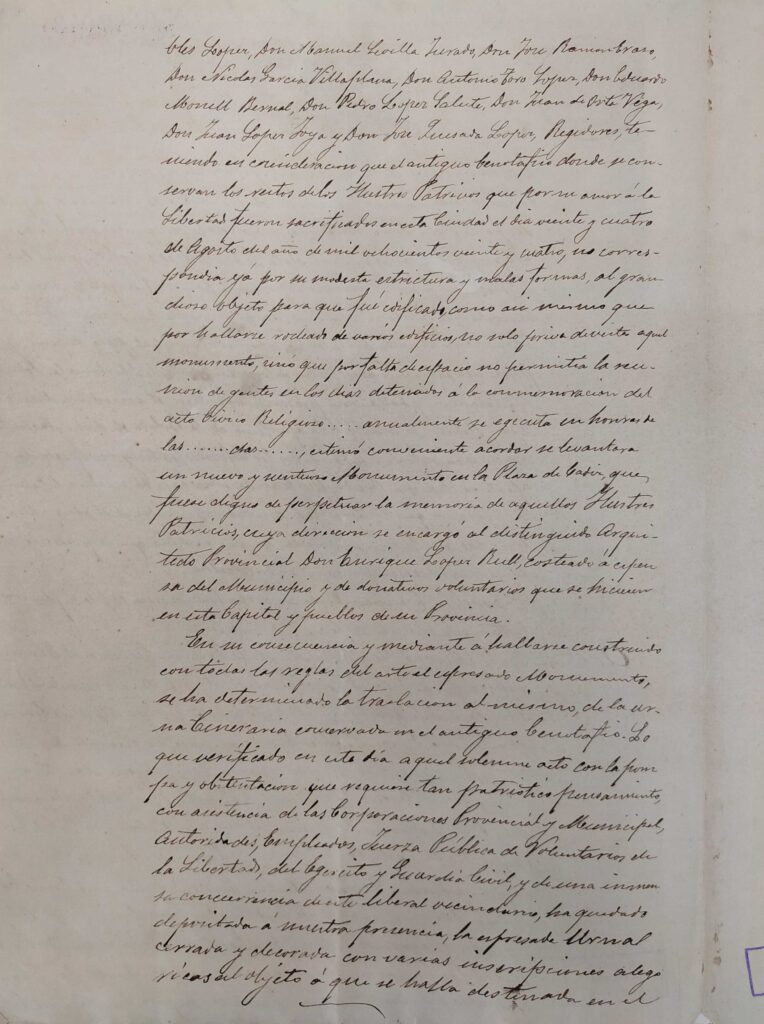 bles Lopez, Don Manuel Sevilla Jurado, Don José Ramon Erazo,
Don Nicolas Garcia Villaplana, Don Antonio Toro Lopez, Don Eduardo
Monell Bernal, Don Pedro Lopez Salute, Don Juan de Orte Vega,
Don Juan Lopez Joya y Don José Quesada Lopez, Regidores, te-
niendo en consideracion que el antiguo Cenotafio donde se con-
servan los restos de los Ilustres Patricios que por su amor á la
Libertad fueron sacrificados en esta Ciudad el dia veinte y cuatro
de Agosto del año de mil ochocientos veinte y cuatro, no corres-
pondia yá por su modesta estructura y malas formas, al gran-
dioso objeto para que fué edificado, como asi mismo que
por hallarse rodeado de varios edificios, no solo priva de vista aquel
monumento, sinó que por falta de espacio no permitia la reu-
nion de gentes en los dias destinados á la conmemoracion del
acto Civico Religioso..... anualmente se egecuta en honras de
las....... das......, estimó conveniente acordar se levantara
un nuevo y suntuoso Monumento en la Plaza de Cadiz, que
fuese digno de perpetuar la memoria de aquellos Ilustres
Patricios, cuya direccion se encargó al distinguido Arqui-
tecto Provincial Don Enrique Lopez Rull, costeado á espen-
sa del Municipio y de donativos voluntarios que se hicieren
en esta Capital y pueblos de su Provincia.
En su consecuencia y mediante á hallarse construido
con todas las reglas del arte el espresado Monumento,
se ha determinado la traslacion al mismo, de la ur-
na Cineraria conservada en el antiguo Cenotafio. Lo
que verificado en este dia aquel solemne acto con la pom
pa y obstentacion que requiere tan patriotico pensamiento,
con asistencia de las Corporaciones Provincial y Municipal,
Autoridades, Empleados, Fuerza Pública de Voluntarios de
la Libertad, del Egercito y Guardia Civil, y de una inmen
sa concurrencia de este liberal vecindario, ha quedado
depositada á nuestra presencia, la espresada Urna
cerrada y decorada con varias inscripciones alego
ricas al objeto á que se halla destinada en el